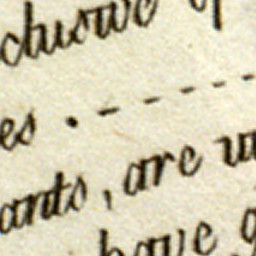 clusive of
es . - - - - -
ants, are u
have g